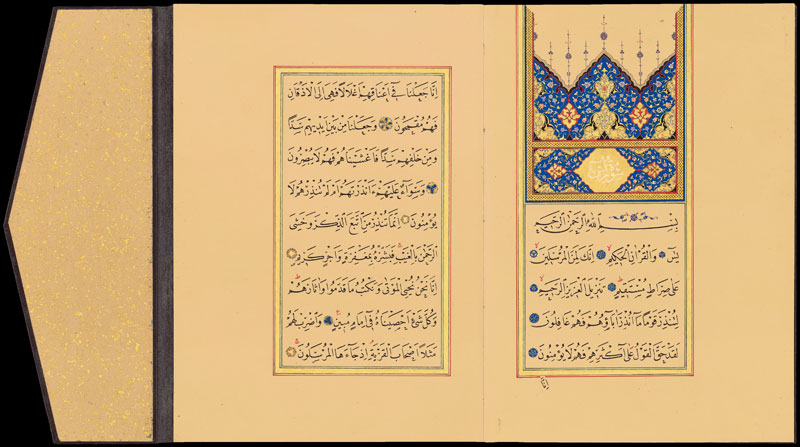 بِسْمِ اللّٰهِ الرَّحْمٰنِ الرَّحِيمِ
يٰسٓ وَالْقُرْاٰنِ الْحَكِيمِ اِنَّكَ لَمِنَ الْمُرْسَلِينَ
عَلٰى صِرَاطٍ مُسْتَقِيمٍ تَنْزِيلَ الْعَزِيزِ الرَّحِيمِ
لِتُنْذِرَ قَوْمًا مَا اُنْذِرَ اٰبَاؤُهُمْ فَهُمْ غَافِلُونَ
لَقَدْ حَقَّ الْقَوْلُ عَلٰى اَكْثَرِهِمْ فَهُمْ لَا يُؤْمِنُونَ
اِنَّا
اِنَّا جَعَلْنَا فِى اَعْنَاقِهِمْ اَغْلَالًا فَهِىَ اِلَى الْاَذْقَانِ
فَهُمْ مُقْمَحُونَ وَجَعَلْنَا مِنْ بَيْنِ اَيْدِيهِمْ سَدًّا
وَمِنْ خَلْفِهِمْ سَدًّا فَاَغْشَيْنَاهُمْ فَهُمْ لَا يُبْصِرُونَ
وَسَوَاءٌ عَلَيْهِمْ ءَاَنْذَرْتَهُمْ اَمْ لَمْ تُنْذِرْهُمْ لَا
يُؤْمِنُونَ اِنَّمَا تُنْذِرُ مَنِ اتَّبَعَ الذِّكْرَ وَخَشِىَ
الرَّحْمٰنَ بِالْغَيْبِ فَبَشِّرْهُ بِمَغْفِرَةٍ وَاَجْرٍ كَرِيمٍ
اِنَّا نَحْنُ نُحْيِى الْمَوْتٰى وَنَكْتُبُ مَا قَدَّمُوا وَاٰثَارَهُمْ
وَكُلَّ شَىْءٍ اَحْصَيْنَاهُ فِى اِمَامٍ مُبِينٍ وَاضْرِبْ لَهُمْ
مَثَلًا اَصْحَابَ الْقَرْيَةِ اِذْ جَاءَهَا الْمُرْسَلُونَ